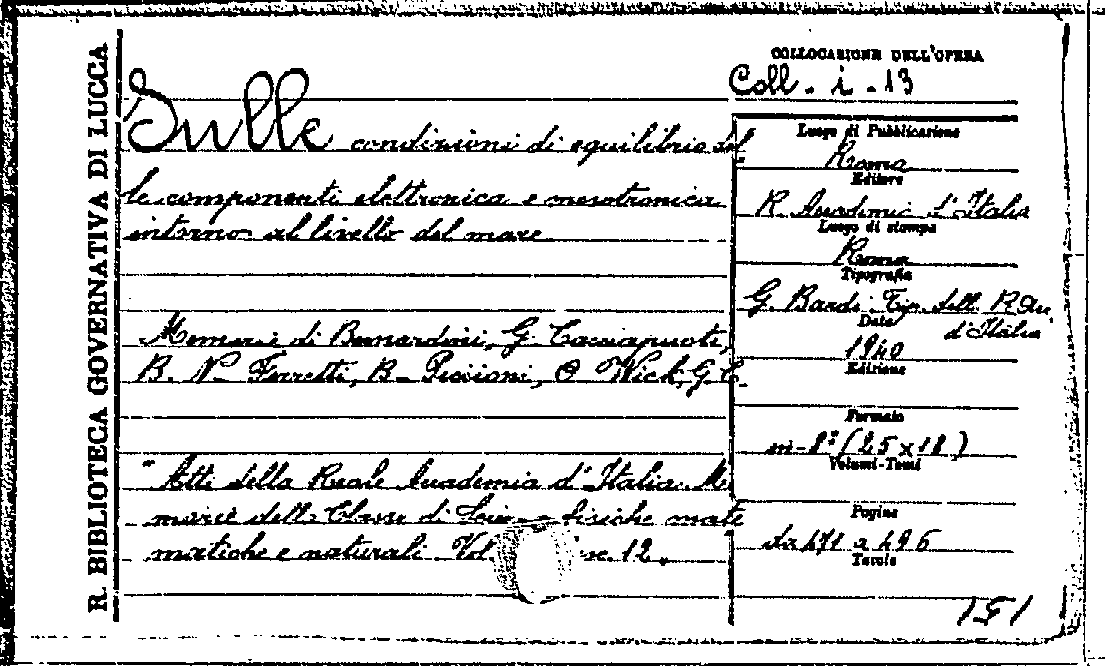 R. BIBLIOTECA GOVERNATIVA DI LUCCA
COLLOCAZIONE DELL'OPERA
Coll. i - 13
Sulle condizioni di equilibrio del
le componenti elettronica e mesotronica
intorno al livello del mare
Memorie di Bernardini, G. Cacciapuoti,
B. N. Ferretti, B. Piccioni, O Wick, G. C.
"Atti della Reale Accademia d'Italia. Me
morie della Classe di Scienze fisiche mate
matiche e naturali Vol 12.
Luogo di Pubblicazione
Roma
Editore
R. Accademia d'Italia
Luogo di stampa
Roma
Tipografia
G. Bardi. Tip. della R. Acc.
d'Italia
Data
1940
Edizione
Formato
in-8° (25 x 18)
Volumi-Tomi
Pagine
da 471 a 496
Tavole
151